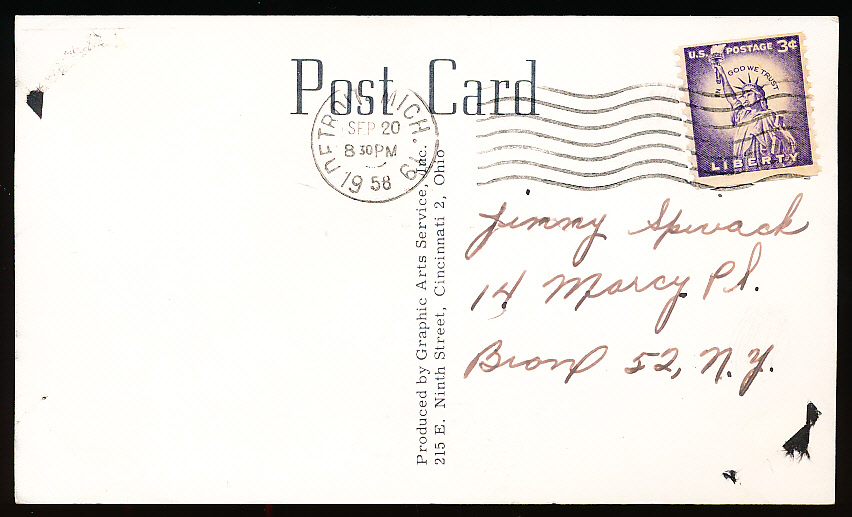 Post Card
U.S. POSTAGE 3¢
IN GOD WE TRUST
LIBERTY
DETROIT, MICH. 19
SEP 20
8 30 PM
1958
Produced by Graphic Arts Service, Inc.
215 E. Ninth Street, Cincinnati 2, Ohio
Jimmy Spivack
14 Marcy Pl.
Bronx 52, N.Y.